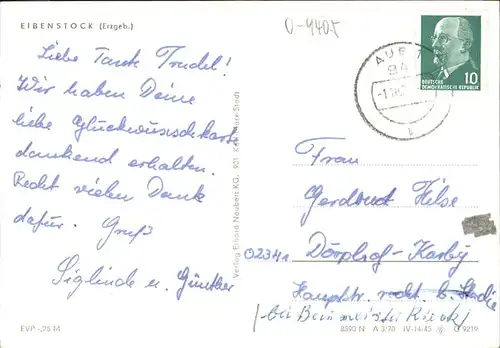 EIBENSTOCK (Erzgeb.)
O-9405
Liebe Tante Trudel!
Wir haben Deine
liebe Glückwunschkarte
dankend erhalten.
Recht vielen Dank
dafür. Gruß
Siglinde u. Günther
EVP -,25 M
Verlag Erhard Neubert KG, 901 Karl-Marx-Stadt
AUE
94
10
DEUTSCHE
DEMOKRATISCHE REPUBLIK
Frau
Gerdrud Hilse
02341 Dörphof-Karby
Hauptstr.
bei Baumeister
8390 N A 3/70 IV-14-45 G 9219